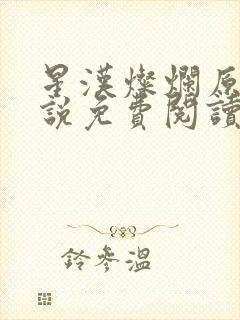 星漢燦爛原
說免費閱讀
鈴參溫